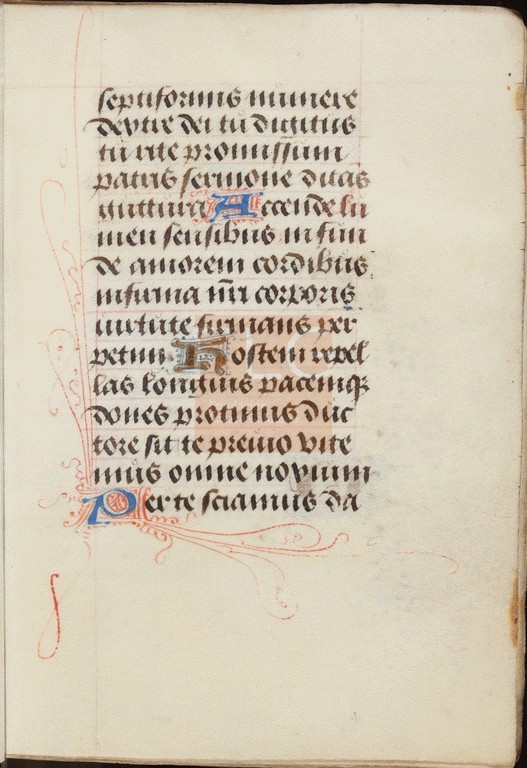 septiformis munere
dextre dei tu digitus
tu rite promissum
patris sermone ditas
guttura Accende lu
men sensibus in fun
de amorem cordibus
infirma nr̄i corporis
uirtute firmans per
petim Hostem repel
las longius pacemqꝫ
dones protinus duc
tore sic te preuio vite
mus omne noxium
Per te sciamus da